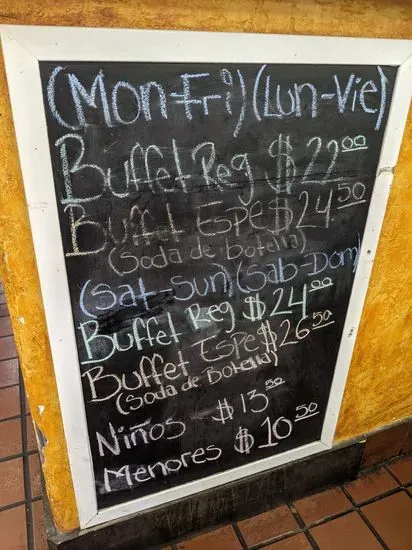 (Mon-Fri) (Lun-Vie)
Buffet Reg $22.00
Buffet Espe $24.50
(Soda de botella)
(Sat-Sun) (Sab-Dom)
Buffet Reg $24.00
Buffet Espe $26.50
(Soda de Botella)
Niños - $13.50
Menores $10.50